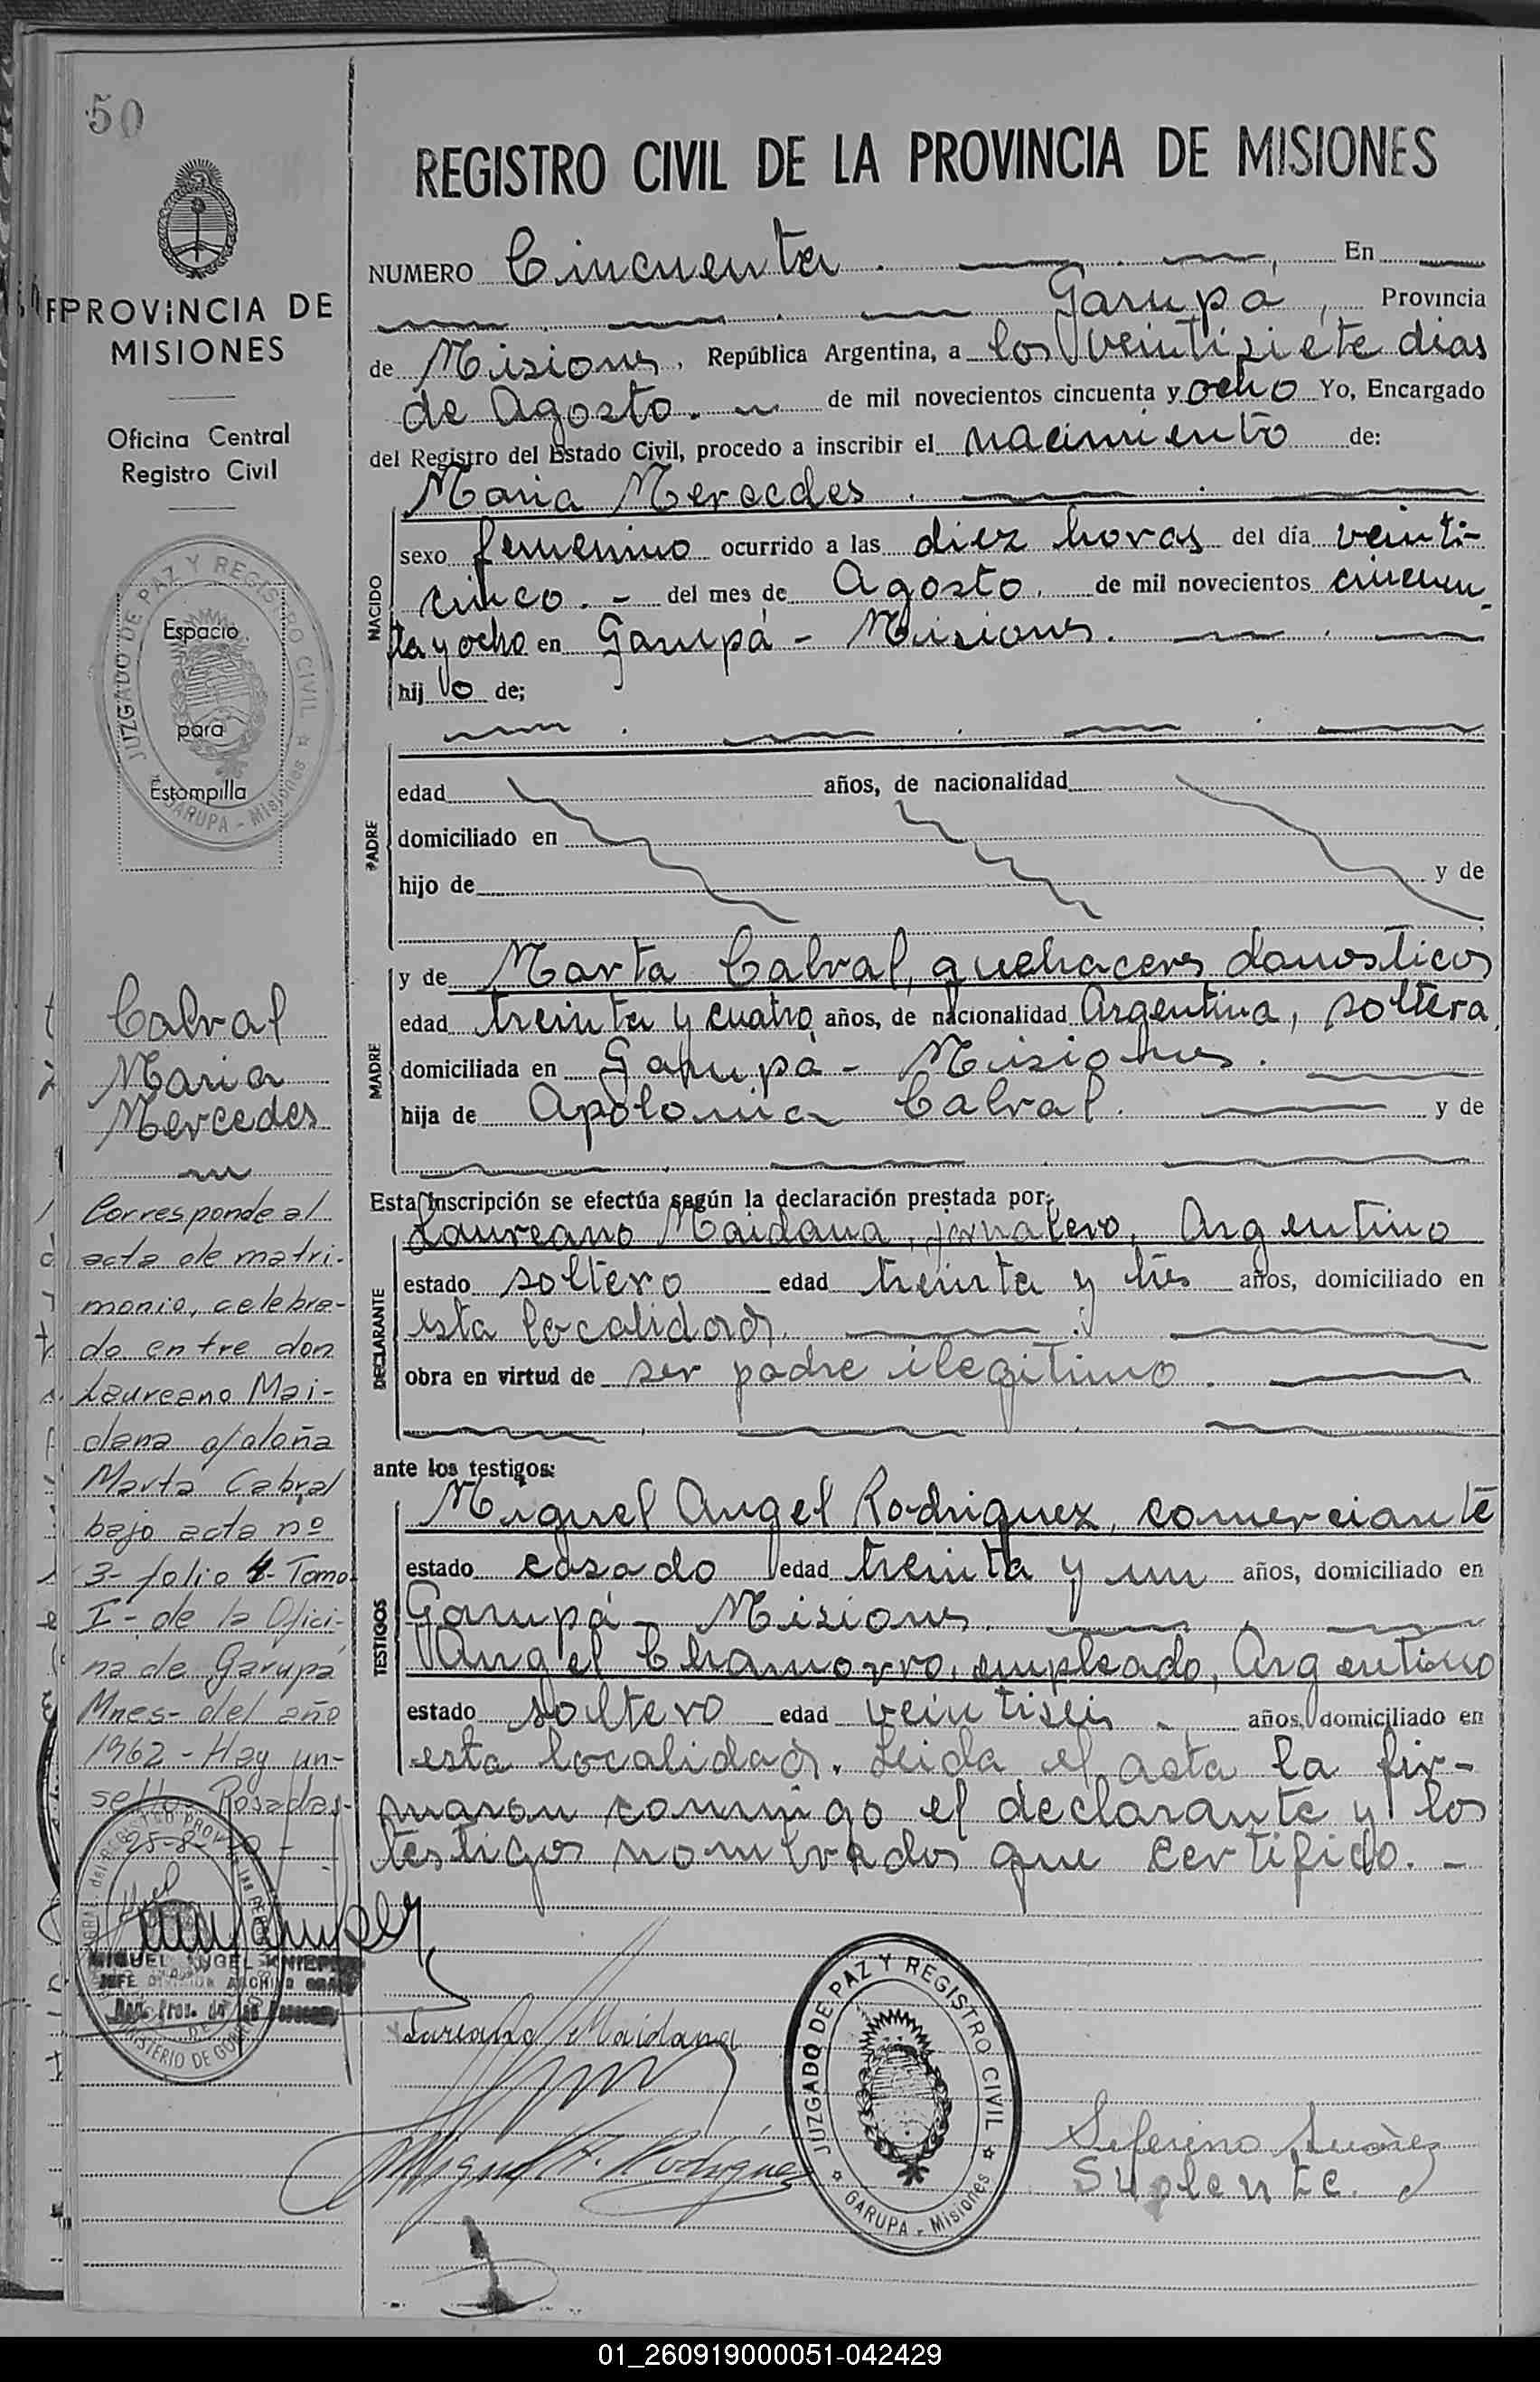 50
PROVINCIA DE
MISIONES
Oficina Central
Registro Civil
JUZGADO DE PAZ Y REGISTRO CIVIL
GARUPA - Misiones
Espacio
para
Estampilla
Cabral
Maria
Mercedes
Corresponde al
acta de matri-
monio, celebra-
do entre don
Laureano Mai-
dana c/ doña
Marta Cabral
bajo acta nº
3- folio 4- Tomo
I- de la Ofici-
na de Garupá
Mnes- del año
1962 - Hay un-
sello Posadas-
25-8-
MIGUEL ANGEL
JEFE DIVISION ARCHIVO GRAL
MINISTERIO DE
REGISTRO CIVIL DE LA PROVINCIA DE MISIONES
NUMERO Cincuenta. , En
Garupa, Provincia
de Misiones, República Argentina, a los veintisiete dias
de Agosto. de mil novecientos cincuenta y ocho Yo, Encargado
del Registro del Estado Civil, procedo a inscribir el nacimiento de:
Maria Mercedes.
NACIDO
sexo femenino ocurrido a las diez horas del día veinti-
cinco. - del mes de Agosto. de mil novecientos cincuen-
ta y ocho en Garupá - Misiones.
hij o de;
PADRE
edad años, de nacionalidad
domiciliado en
hijo de y de
MADRE
y de Marta Cabral, quehaceres domesticos
edad treinta y cuatro años, de nacionalidad Argentina, soltera,
domiciliada en Garupá - Misiones.
hija de Apolonia Cabral. y de
Esta inscripción se efectúa según la declaración prestada por:
DECLARANTE
Laureano Maidana, jornalero, Argentino
estado soltero edad treinta y tres años, domiciliado en
esta localidad.
obra en virtud de ser padre ilegitimo.
ante los testigos:
TESTIGOS
Miguel Angel Rodriguez, comerciante
estado casado edad treinta y un años, domiciliado en
Garupá - Misiones.
Angel Chamorro, empleado, Argentino
estado soltero edad veintiseis - años, domiciliado en
esta localidad. Leida el acta la fir-
maron conmigo el declarante y los
testigos nombrados que certifico. -
Laureano Maidana
Miguel A. Rodriguez
JUZGADO DE PAZ Y REGISTRO CIVIL
GARUPA - Misiones
Suplente.
01_260919000051-042429